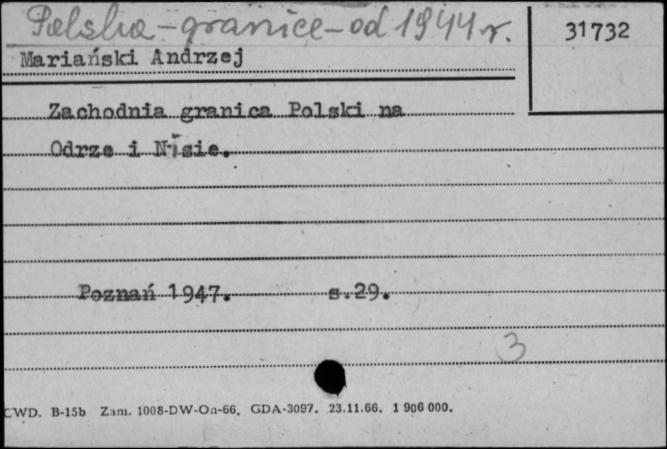 Polska - granice - od 1944 r.
31732
Mariański Andrzej
Zachodnia granica Polski na
Odrze i Nisie.
Poznań 1947. s.29.
3
CWD. B-15b Zam. 1008-DW-Oa-66. GDA-3097. 23.11.66. 1 906 000.